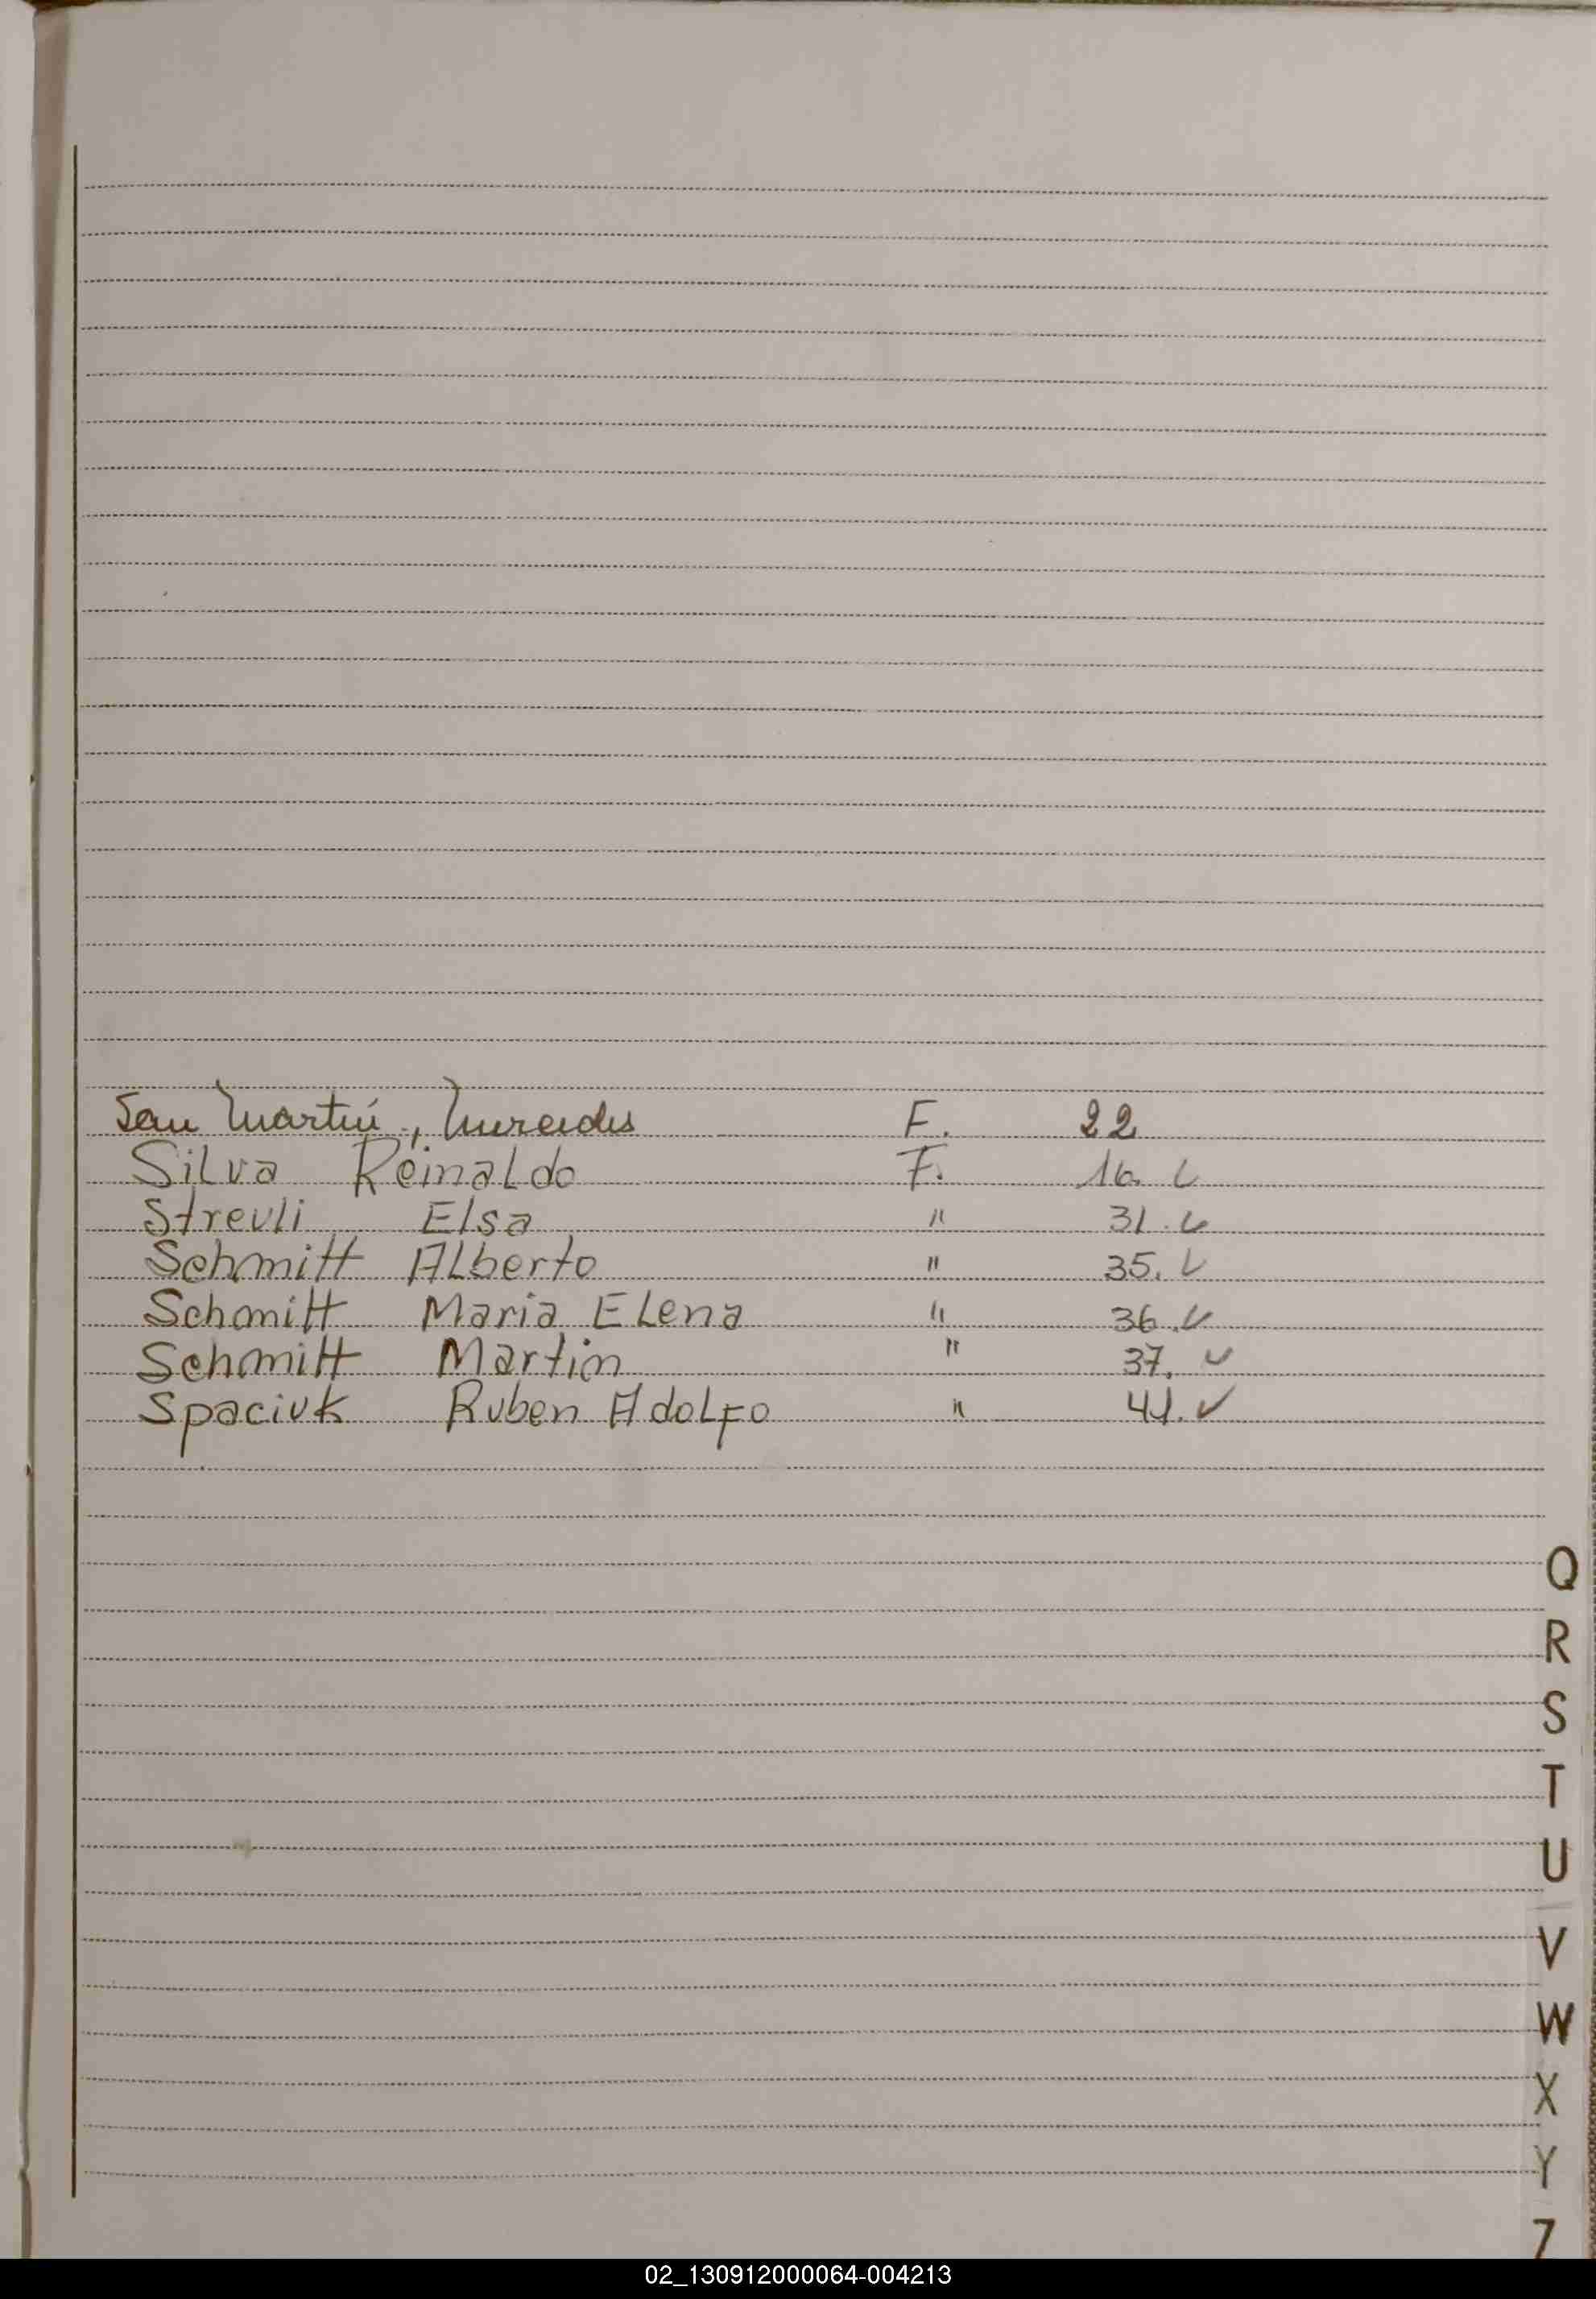 San Martín, Mercedes F. 22
Silva Reinaldo F. 16. ✓
Streuli Elsa " 31. ✓
Schmitt Alberto " 35. ✓
Schmitt Maria Elena " 36. ✓
Schmitt Martin " 37. ✓
Spaciuk Ruben Adolfo " 41. ✓
Q
R
S
T
U
V
W
X
Y
Z
02_130912000064-004213